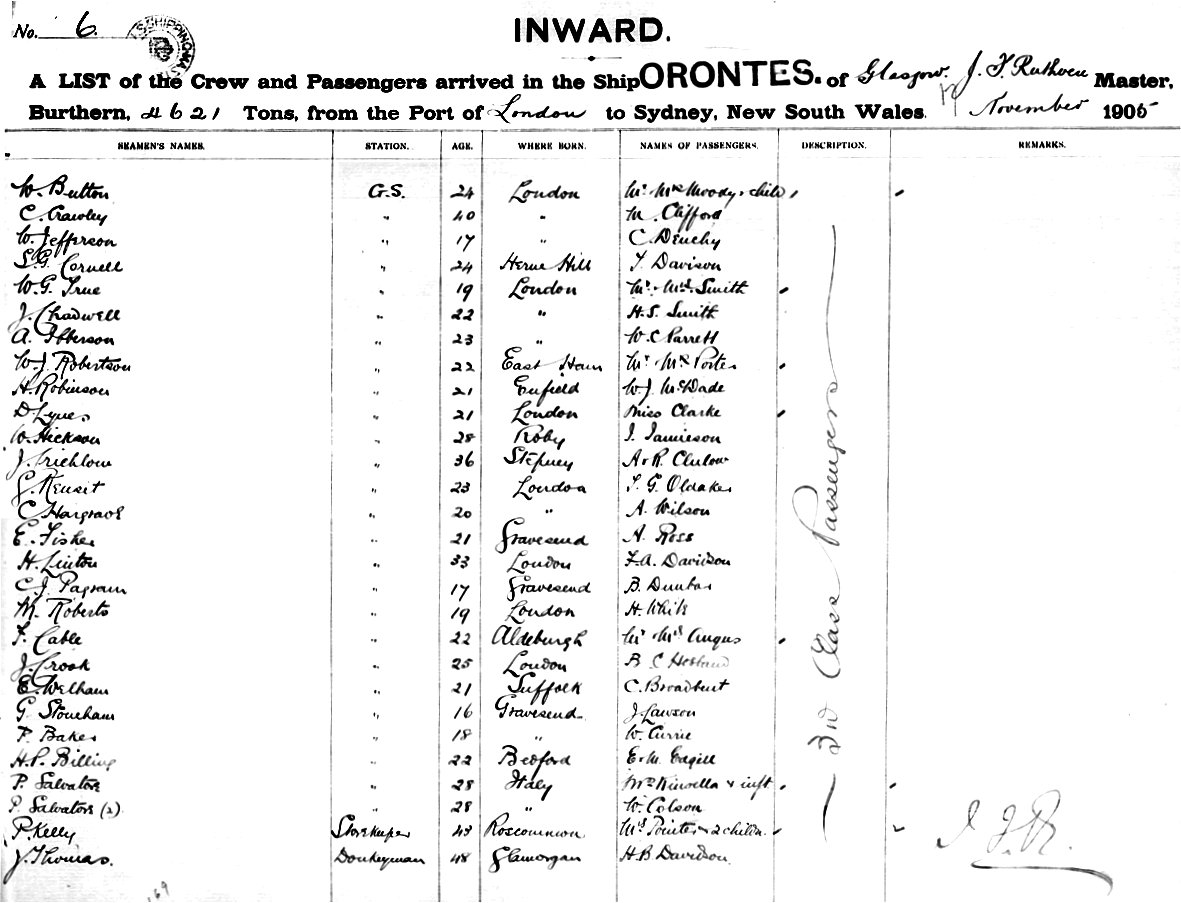 No. 6.
SHIPPING MAS
INWARD.
A LIST of the Crew and Passengers arrived in the Ship ORONTES. of Glasgow. J. F. Ruthven Master,
Burthern, 4621 Tons, from the Port of London to Sydney, New South Wales. November 1905
SEAMEN'S NAMES. STATION. AGE. WHERE BORN. NAMES OF PASSENGERS. DESCRIPTION. REMARKS.
W. Button G.S. 24 London Mr. Mrs Moody & child
C. Crawley " 40 " M. Clifford
W. Jefferson " 17 " C. Denchy
S.G. Cornell " 24 Herne Hill T. Davison
W.G. True " 19 London Mr. Mrs. Smith
J. Chadwell " 22 " H.S. Smith
A. Ibberson " 23 " W.C Parrett
W.J. Robertson " 22 East Ham Mr Mrs Porter
H. Robinson " 21 Enfield W.J. McDade
D. Lynes " 21 London Miss Clarke
W. Hickson " 28 Roby J. Jamieson
J. Trichlow " 36 Stepney A & R. Clulow
G. Kensit " 23 London T. G. Oldaker
C. Hargrave " 20 " A. Wilson
E. Fisher " 21 Gravesend A. Ross
H. Linton " 33 London F.A. Davidson
C.J. Pagram " 17 Gravesend B. Dunbar
M. Roberts " 19 London H. White
F. Cable " 22 Aldeburgh Mr Mrs Angus
J. Crook " 25 London B C Hosband
E. Welham " 21 Suffolk C. Broadbent
G. Stoneham " 16 Gravesend J. Lawson
P. Baker " 18 " W. Currie
H.P. Billing " 22 Bedford E & M. Edgill
P. Salvatore " 28 Italy Mrs Kinsella & inft.
P. Salvatore (2) " 28 " W. Colson
P. Kelly Storekeeper 43 Roscommon Mrs Pointer & 2 childn.
J. Thomas. Donkeyman 48 Glamorgan H.B Davidson
3rd Class Passengers
J. F. R.
169